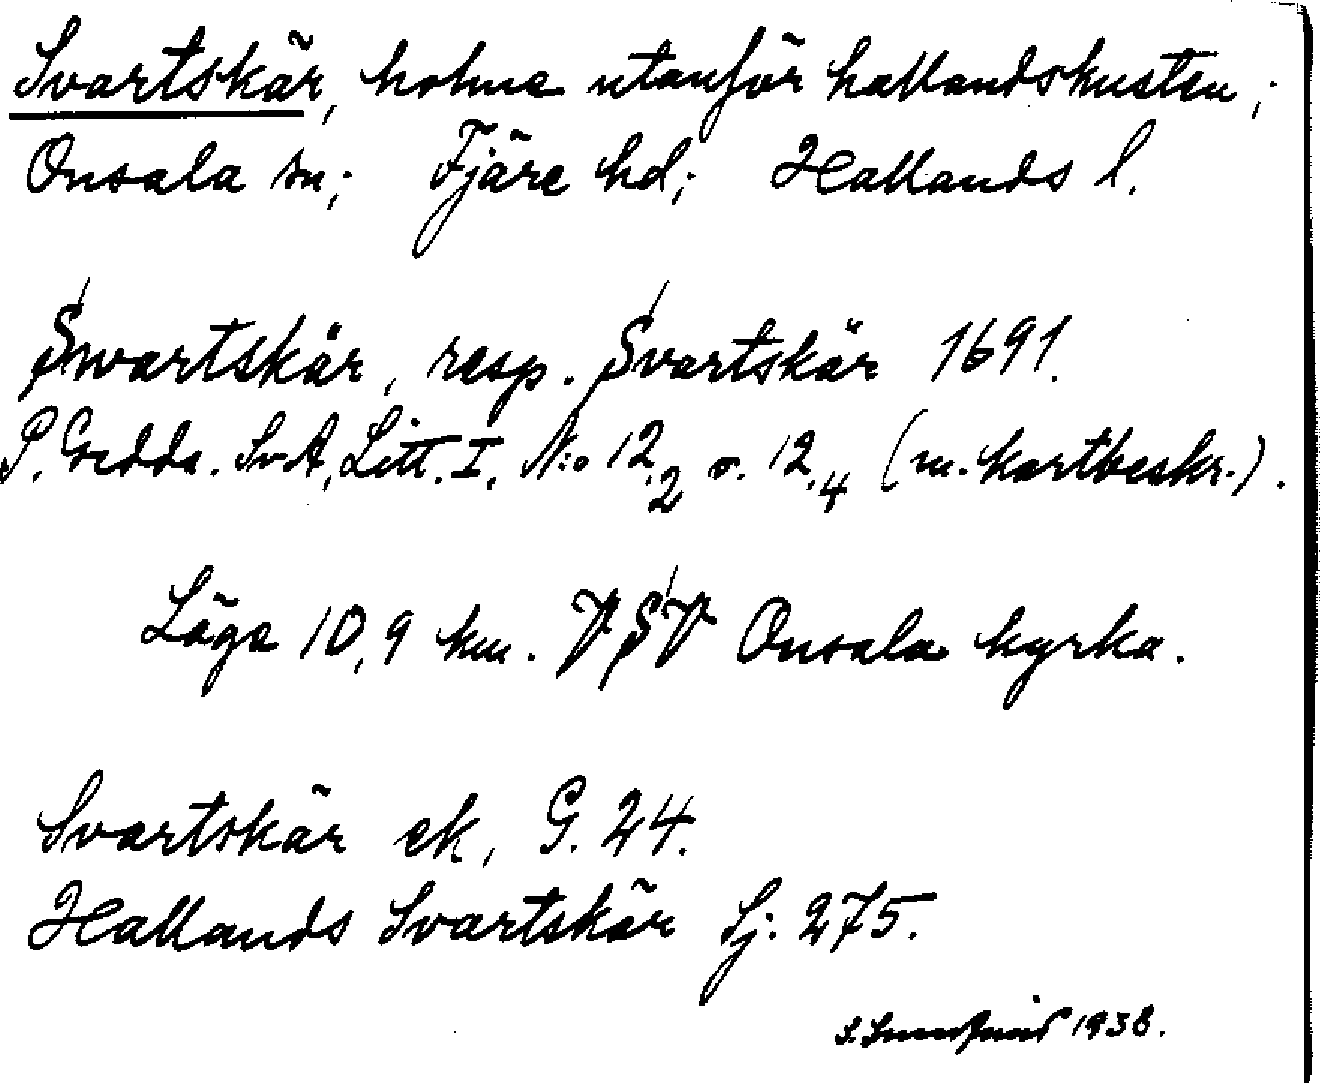 Svartskär, holme utanför hallandskusten;
Onsala sn; Fjäre hd; Hallands l.
Swartskär, resp. Svartskär 1691.
P. Gedda. SvA, Litt. I. N:o 12.2 o. 12.4 (m. kartbeskr.).
Läge 10,9 km. VSV Onsala kyrka.
Svartskär ek, G. 24.
Hallands Svartskär Sj: 275.
S. 1938.